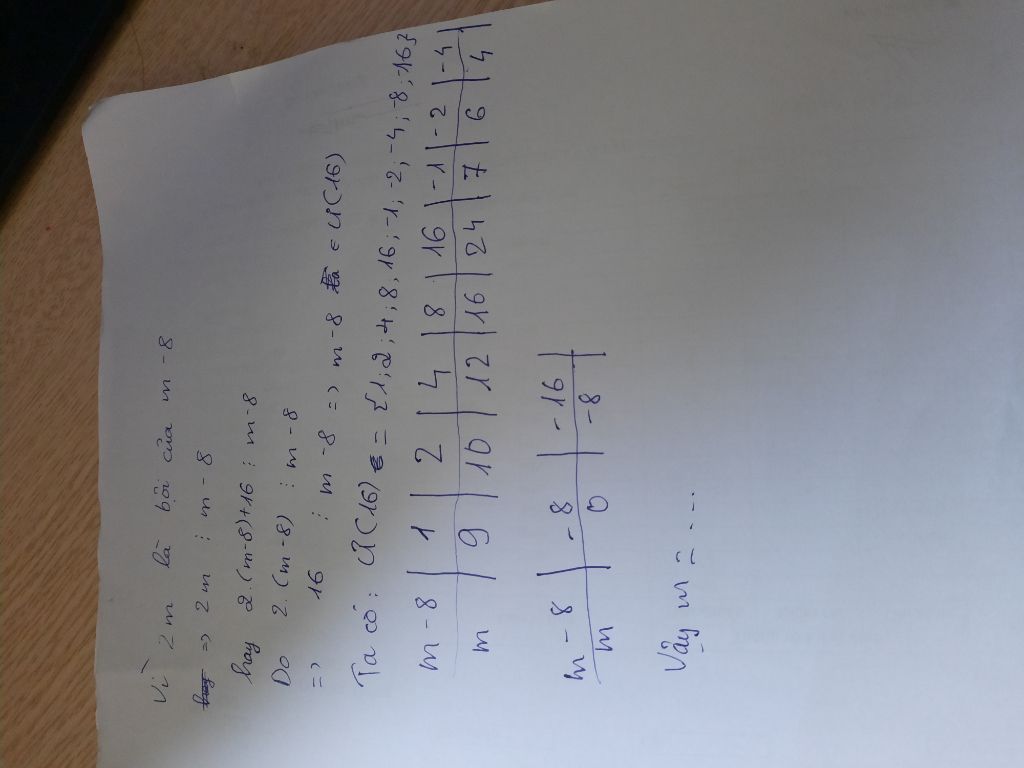 Vì 2m là bội của m - 8
=> 2m ⋮ m - 8
hay 2.(m-8)+16 ⋮ m-8
Do 2.(m-8) ⋮ m-8
=> 16 ⋮ m-8 => m-8 ∈ Ư(16)
Ta có: Ư(16) = {1;2;4;8,16,-1,-2;-4;-8;-16}
m-8 | 1 | 2 | 4 | 8 | 16 | -1 | -2 | -4
m | 9 | 10 | 12 | 16 | 24 | 7 | 6 | 4
m-8 | -8 | -16
m | 0 | -8
Vậy m = ...